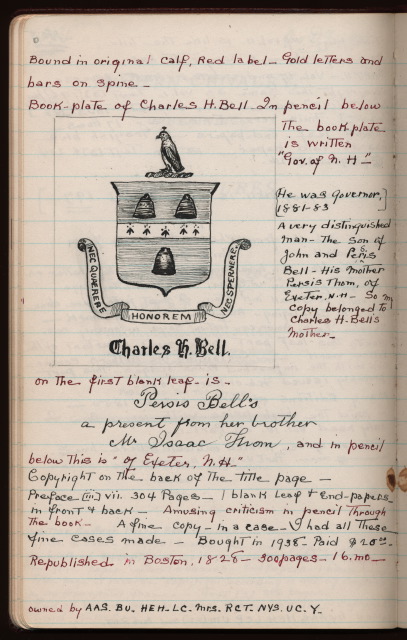 Bound in original calf, Red label - Gold letters and
bars on spine -
Book-plate of Charles H. Bell - In pencil below
the book-plate
is written
"Gov. of N. H -"
He was Governor,
1881-83
A very distinguished
man - The son of
John and Persis
Bell - His Mother
Persis Thom, of
Exeter. N.H - So my
Copy belonged to
Charles H. Bell's
Mother -
NEC QUAERERE
HONOREM
NEC SPERNERE.
Charles H. Bell.
on the first blank leaf - is -
Persis Bell's
a present from her brother
Mr Isaac Thom, and in pencil
below this is "of Exeter, N.H."
Copyright on the back of the title page -
Preface [iii] vii. 304 Pages - 1 blank leaf & end-papers
in front & back - Amusing criticism in pencil through
the book - A fine copy - in a case - I had all these
fine cases made - Bought in 1938 - Paid $20.00 -
Republished in Boston, 1828 - 300 pages - 16. mo -
owned by AAS. BU. HEH - LC. Mrs. RCT. NYS. UC. Y -